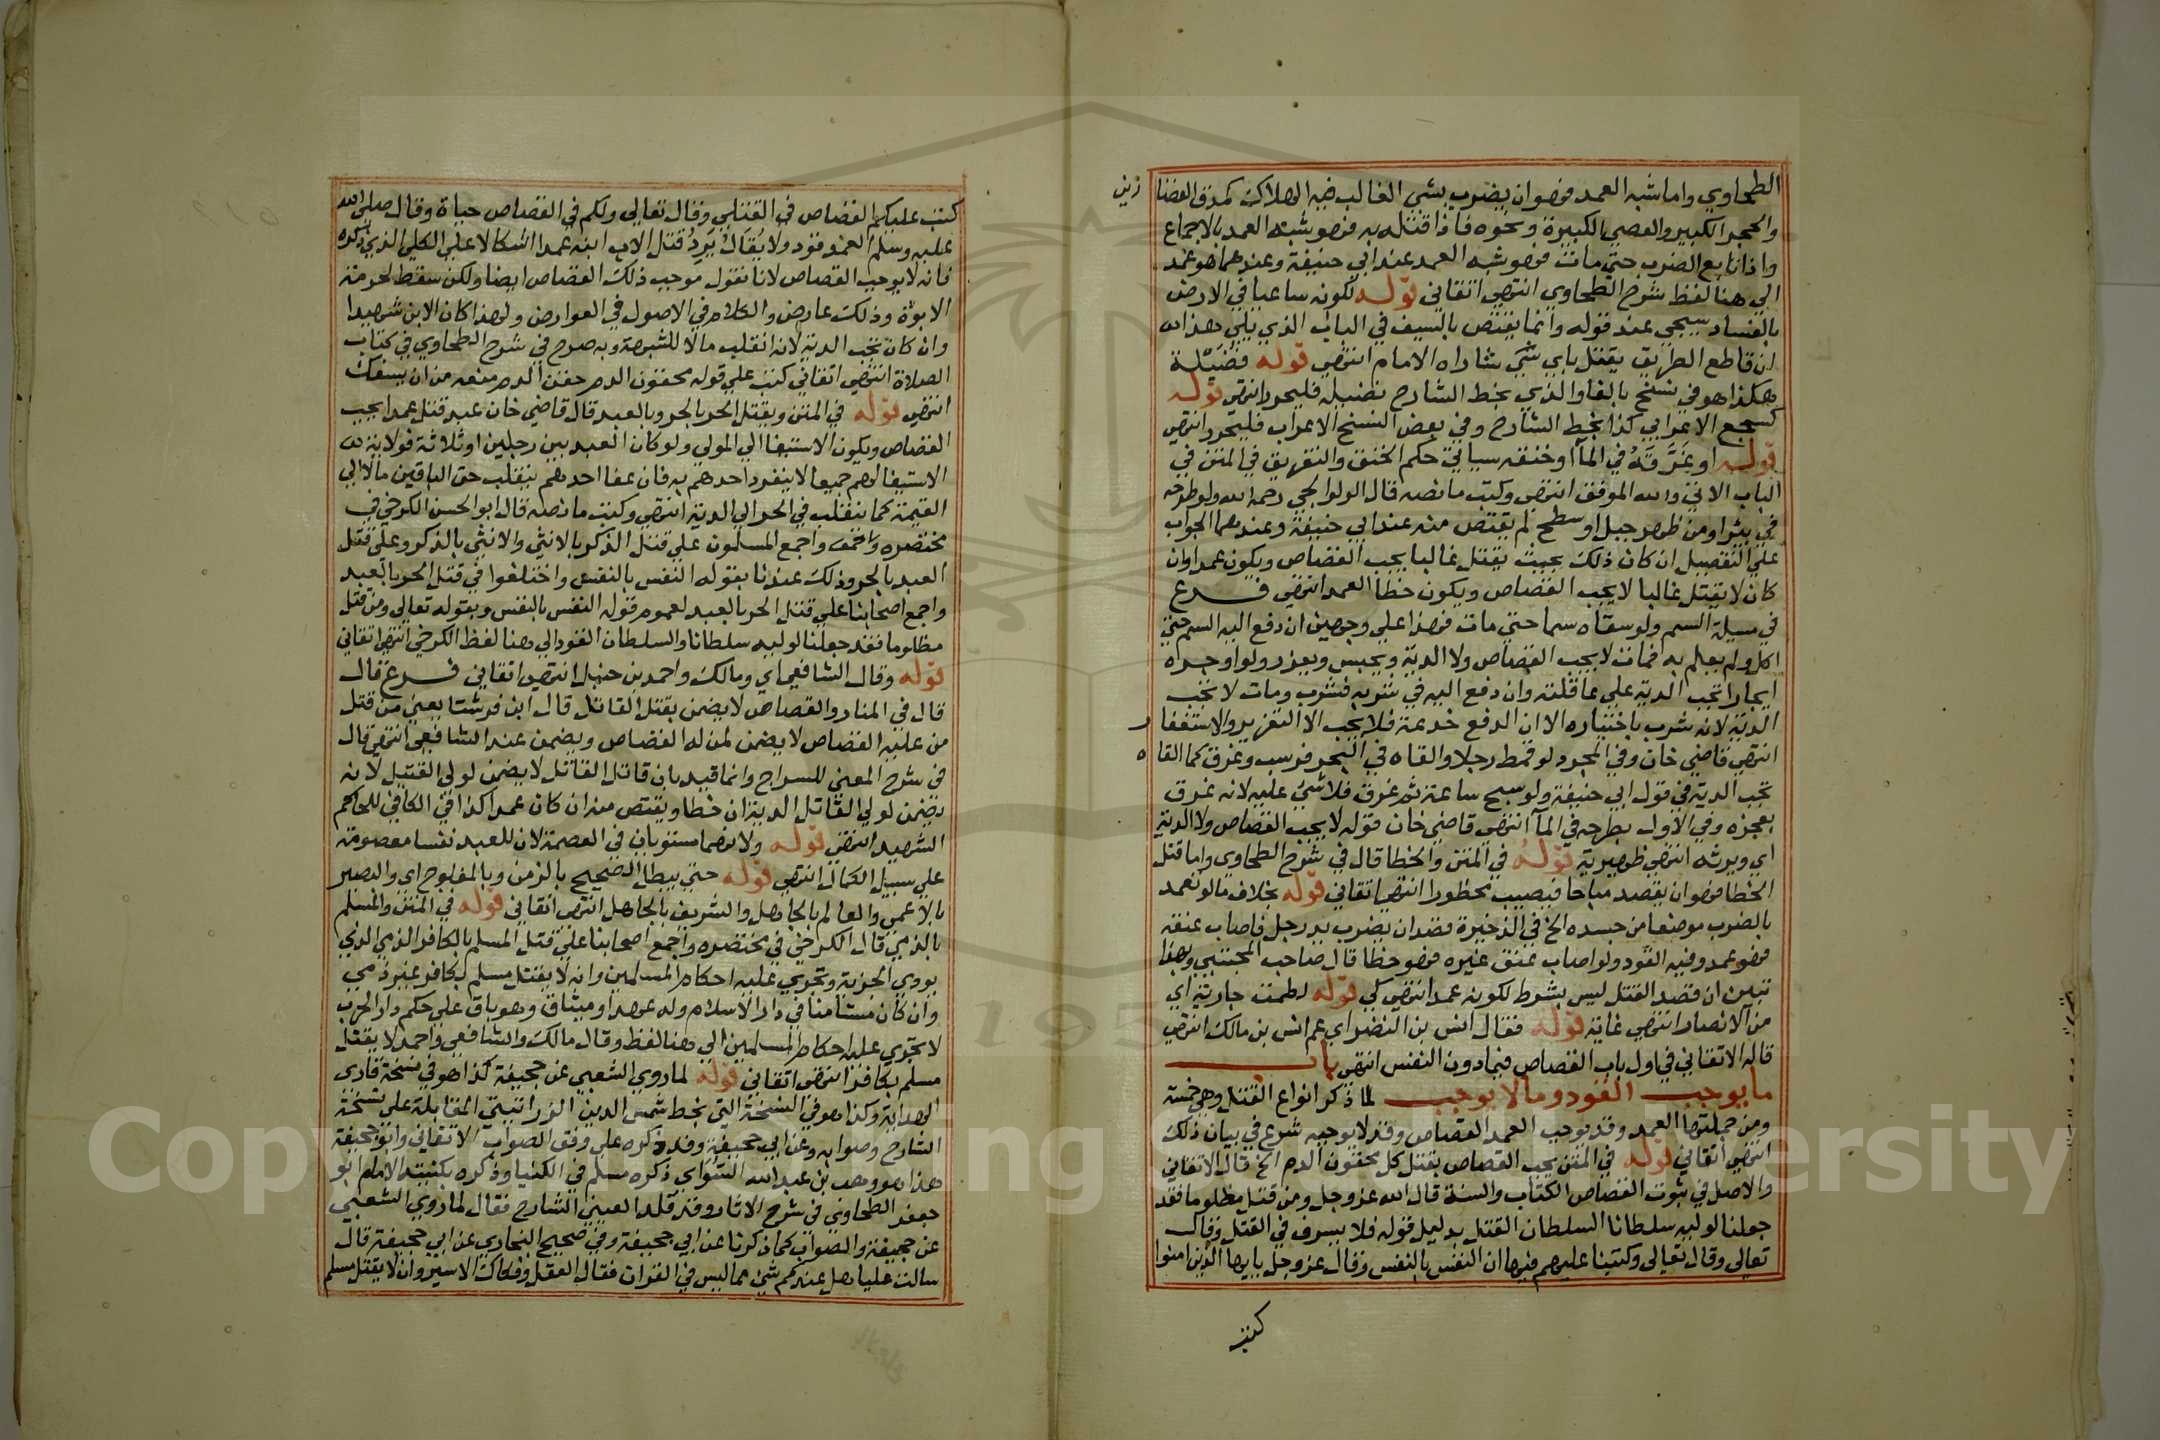 الطحاوي واما شبه العمد فهوان يضرب بشي الغالب فيه الهلاك كمدق القصا
رين
والحجر الكبير والعصي الكبيرة ونحوه فاذا قتله به فهو شبه العمد بالاجماع
واذا تابع الضرب حتي مات فهو شبه العمد عند ابي حنيفة وعندهما هو عمد
الي هنا لفظ شرح الطحاوي انتهي اتقاني قوله لكونه ساعيا في الارض
بالفساد سيجي عند قوله وانما يقتص بالسيف في الباب الذي يلي هذا ان
ان قاطع الطريق يقتل باي شي شاراه الامام انتهي قوله فضيلة
هكذا هو في نسخ بالفا والذي بخط الشارح نضيله فليحرر انتهي قوله
كسجع الاعرابي كذا بخط الشارح وفي بعض النسخ الاعراب فليحرر انتهي
قوله او غرقه في الما او خنقه سياتي حكم الخنق والتغريق في المتن في
الباب الاتي والله الموفق انتهي وكتب ما نصه قال الولوالجي رحمه الله ولو طرحه
في بئر او من ظهر جبل او سطح لم يقتص منه عند ابي حنيفة وعندهما الجواب
علي التفصيل ان كان ذلك بحيث يقتل غالبا يجب القصاص ويكون عمدا وان
كان لا يقتل غالبا لا يجب القصاص ويكون خطا العمد انتهي فرع
في مسيلة السم ولو سقاه سما حتي مات فهذا علي وجهين ان دفع اليه السم حتي
اكل ولم يعلم به فمات لا يجب القصاص ولا الدية ويحبس ويعزر ولو اوجره
ايجارا تجب الدية علي عاقلته وان دفع اليه في شربه فشرب ومات لا تجب
الدية لانه شرب باختياره الا ان الدفع خدعة فلا يجب الا التعزير والاستغفا
ر
انتهي قاضي خان وفي المجرد لو قمط رجلا والقاه في البحر فرسب وغرق كما القا
ه
تجب الدية في قول ابي حنيفة ولو سبح ساعة ثم غرق فلا شي عليه لانه غرق
بعجزه وفي الاول بطرحه في الما انتهي قاضي خان قوله لا يجب القصاص ولا الدية
اي ويرثه انتهي ظهيرية قوله في المتن والخطا قال في شرح الطحاوي واما قتل
الخطا فهو ان يقصد مباحا فيصيب محظورا انتهي اتقاني قوله بخلاف ما لو تعمد
بالضرب موضعا من جسده الخ في الذخيرة قصد ان يضرب يد رجل فاصاب عنقه
فهو عمد وفيه القود ولو اصاب عنق غيره فهو خطا قال صاحب المجتبي وبهذا
تبين ان قصد القتل ليس بشرط لكونه عمدا انتهي كي قوله لطمت جارية اي
من الانصار انتهي غاية قوله فقال انس بن النضر اي عم انس بن مالك انتهي
قاله الاتقاني في اول باب القصاص فيما دون النفس انتهي باب
ما يوجب القود وما لا يوجب لما ذكر انواع القتل وهي خمسة
ومن جملتها العمد وقد يوجب العمد القصاص وقد لا يوجبه شرع في بيان ذلك
انتهي اتقاني قوله في المتن يجب القصاص بقتل كل محقون الدم الخ قال الاتقاني
والاصل في ثبوت القصاص الكتاب والسنة قال الله عز وجل ومن قتل مظلوما فقد
جعلنا لوليه سلطانا السلطان القتل بدليل قوله فلا يسرف في القتل وقال
تعالي وقال تعالي وكتبنا عليهم فيها ان النفس بالنفس وقال عز وجل يا ايها الذين امنوا
كتب
كتب عليكم القصاص في القتلي وقال تعالي ولكم في القصاص حياة وقال صلي الله
عليه وسلم العمد قود ولا يقال يرد قتل الاب ابنه عمدا اشكالا علي الكلي الذي ذكره
فانه لا يوجب القصاص لانا نقول موجب ذلك القصاص ايضا ولكن سقط لحرمة
الابوة وذلك عارض والكلام في الاصول في العوارض ولهذا كان الابن شهيدا
وان كان تجب الدية لانه انقلب مالا للشبهة وبه صرح في شرح الطحاوي في كتاب
الصلاة انتهي اتقاني كتب علي قوله محقون الدم حقن الدم منعه من ان يسفك
انتهي قوله في المتن ويقتل الحر بالحر وبالعبد قال قاضي خان عبد قتل عمدا يجب
القصاص ويكون الاستيفا الي المولي ولو كان العبد بين رجلين او ثلاثة فولاية
الاستيفا لهم جميعا لا ينفرد احدهم به فان عفا احدهم ينقلب حق الباقين مالا الي
القيمة كما ينقلب في الحر الي الدية انتهي وكتب ما نصه قال ابو الحسن الكرخي في
مختصره واجمع المسلمون علي قتل الذكر بالانثي والانثي بالذكر وعلي قتل
العبد بالحر وذلك عندنا بقوله النفس بالنفس واختلفوا في قتل الحر بالعبد
واجمع اصحابنا علي قتل الحر بالعبد لعموم قوله النفس بالنفس وبقوله تعالي ومن قتل
مظلوما فقد جعلنا لوليه سلطانا والسلطان القود الي هنا لفظ الكرخي انتهي اتقاني
قوله وقال الشافعي اي ومالك واحمد بن حنبل انتهي اتقاني فرع قال
قال في المنار والقصاص لا يضمن بقتل القاتل قال ابن فرشتا يعني من قتل
من عليه القصاص لا يضمن لمن له القصاص ويضمن عند الشافعي انتهي قال
في شرح المغني للسراج وانما قيد بان قاتل القاتل لا يضمن لولي القتيل لانه
يضمن لولي القاتل الدية ان خطا ويقتص منه ان كان عمدا كذا في الكافي للحاكم
الشهيد انتهي قوله ولانهما مستويان في العصمة لان للعبد نفسا معصومة
علي سبيل الكمال انتهي قوله حتي يبطل الصحيح بالزمن وبالمفلوج اي والبصير
بالاعمي والعالم بالجاهل والشريف بالجاهل انتهي اتقاني قوله في المتن والمسلم
بالذمي قال الكرخي في مختصره واجمع اصحابنا علي قتل المسلم بالكافر الذمي الذي
يودي الجزية وتجري عليه احكام المسلمين وانه لا يقتل مسلم بكافر غير ذمي
وان كان مستامنا في دار الاسلام وله عهد او ميثاق وهو باق علي حكم دار الحرب
لا تجري عليه احكام المسلمين الي هنا لفظه وقال مالك والشافعي واحمد لا يقتل
مسلم بكافر انتهي اتقاني قوله لما روي الشعبي عن جحيفة كذا هو في نسخة قاري
الهداية وكذا هو في النسخة التي بخط شمس الدين الزراتيتي المقابلة علي نسخة
الشارح وصوابه وعن ابي جحيفة وقد ذكره علي وفق الصواب الاتقاني وابو جحيفة
هذا هو وهب بن عبد الله السوائي ذكره مسلم في الكنيا وذكره بكنيته الامام ابو
جعفر الطحاوي في شرح الاثار وقد قلد العيني الشارح فقال لما روي الشعبي
عن جحيفة والصواب كما ذكرنا عن ابي جحيفة وفي صحيح البخاري عن ابي جحيفة قال
سالت عليا هل عندكم شي مما ليس في القران فقال العقل وفكاك الاسير وان لا يقتل مسلم